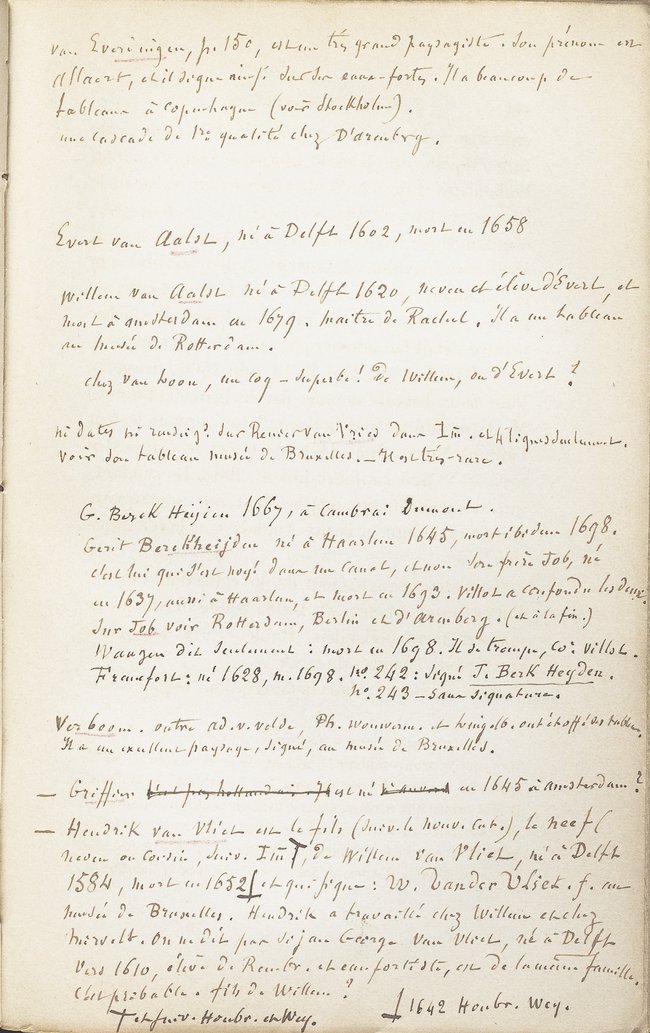 van Everdingen, p. 150, est un très grand paysagiste. Son prénom est
Allaert, et il signe ainsi sur ses eaux-fortes. Il a beaucoup de
tableaux à Copenhague (voir Stockholm).
une cascade de 1re qualité chez D'aremberg.
Evert van Aalst, né à Delft 1602, mort en 1658
Willem van Aalst né à Delft 1620, neveu et élève d'Evert, et
mort à amsterdam en 1679. maître de Rachel. Il a un tableau
au musée de Rotterdam.
chez van Loon, un coq – superbe! De Willem, ou d'Evert ?
ni dates ni renseigts sur Renier van Vries dans Im. et 4 lignes seulement.
voir son tableau musée de Bruxelles. – Il est très-rare.
G. Berck Heyien 1667, à Cambrai Dumont.
Gerit Berckheijden né à Haarlem 1645, mort ibidem 1698.
c'est lui qui s'est noyé dans un canal, et non son frère Job, né
en 1637, aussi à Haarlem, et mort en 1693. Villot a confondu les deux.
Sur Job voir Rotterdam, Berlin et d'aremberg. (et à la fin.)
Waagen dit seulement : mort en 1698. Il se trompe, co. Villot.
Francfort : né 1628, m. 1698. no. 242 : signé J. Berk Heyden.
no. 243 – Sans signature.
Verboom. outre ad. v. velde, Ph. wouwerm. et Lingelb. ont étoffé ses tablx.
Il a un excellent paysage, signé, au musée de Bruxelles.
– Griffier est né en 1645 à amsterdam ?
– Hendrik van Vliet est le fils (suiv. le nouv. cat.), le neef (
neveu ou cousin, suiv. Im), de Willem van Vliet, né à Delft
1584, mort en 1652 et qui signe : W. Vander Vliet. f. au
musée de Bruxelles. Hendrik a travaillé chez Willem et chez
Mirevelt. On ne dit pas si jan George van Vliet, né à Delft
vers 1610, élève de Rembr. et eaufortiste, est de la même famille.
c'est probable. fils de Willem ?
et suiv. Houbr. et Wey.
1642 Houbr. Wey.